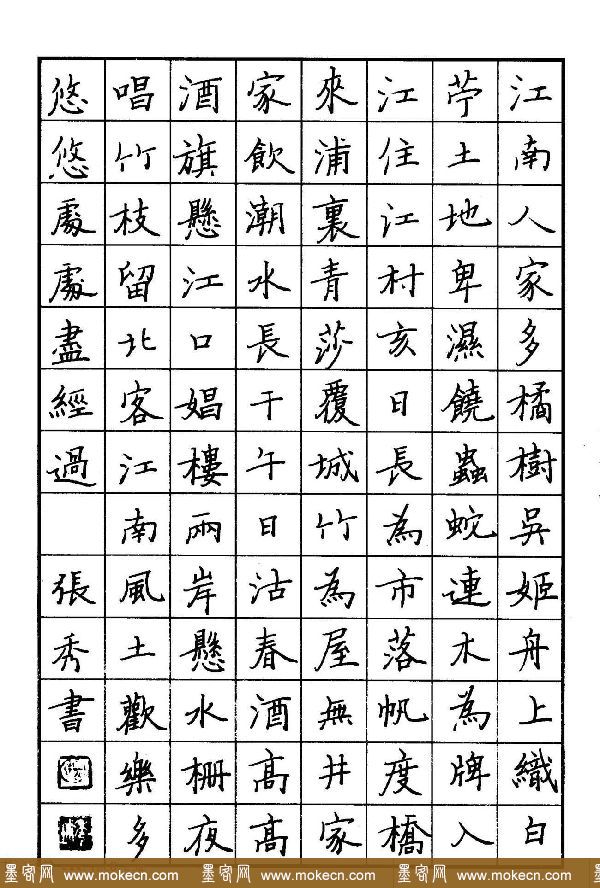 江南人家多橘樹吳姬舟上織白
苧土地卑濕饒蟲蛇連木為牌入
江住江村亥日長為市落帆度橋
來浦裏青莎覆城竹為屋無井家
家飲潮水長干午日沽春酒高高
酒旗懸江口娼樓兩岸懸水柵夜
唱竹枝留北客江南風土歡樂多
悠悠處處盡經過 張秀書
墨客网 www.mokecn.com 墨客网 www.mokecn.com 墨客网 www.mokecn.com